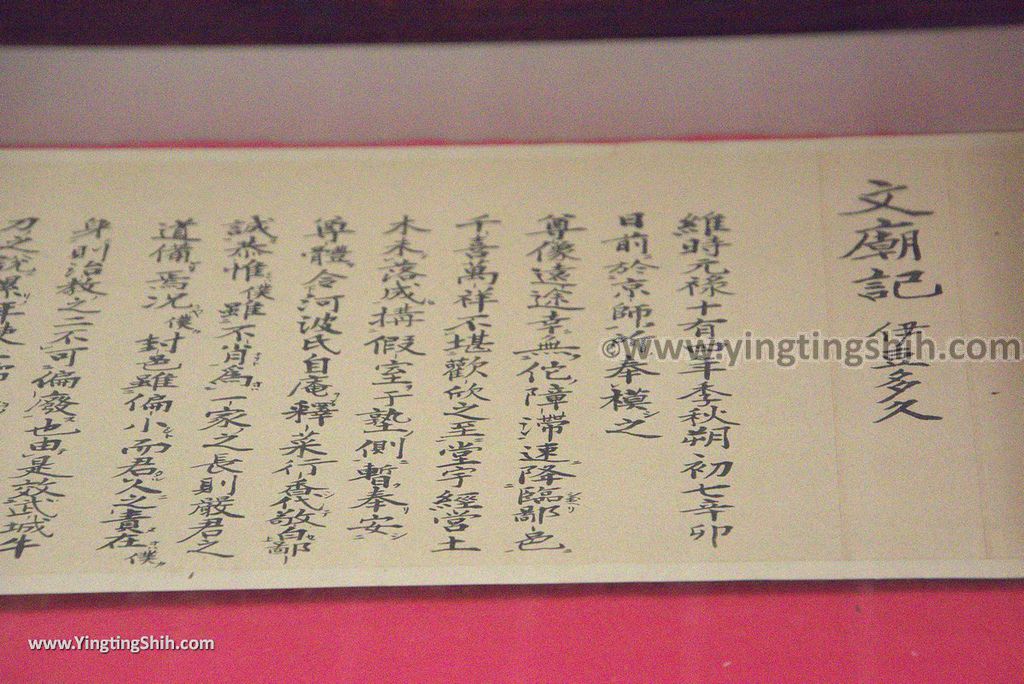 文廟記 多久
維時元禄十有四年季秋朔初七辛卯
日前於京師所奉模之
尊像遠途幸無佗障滞速降臨鄙邑
千喜萬祥不堪歡欣之至堂宇經営土
木未落成構假室于塾側暫奉安
尊體令河波氏自庵釋菜行香代敬白鄙
誠恭惟僕雖不肖為一家之長則嚴君之
道備焉况僕封邑雖偏小而君人之責在僕
身則治教之二不可偏廢也由是效武城牛
刀之
©www.yingtingshih.com
www.YingtingShih.com